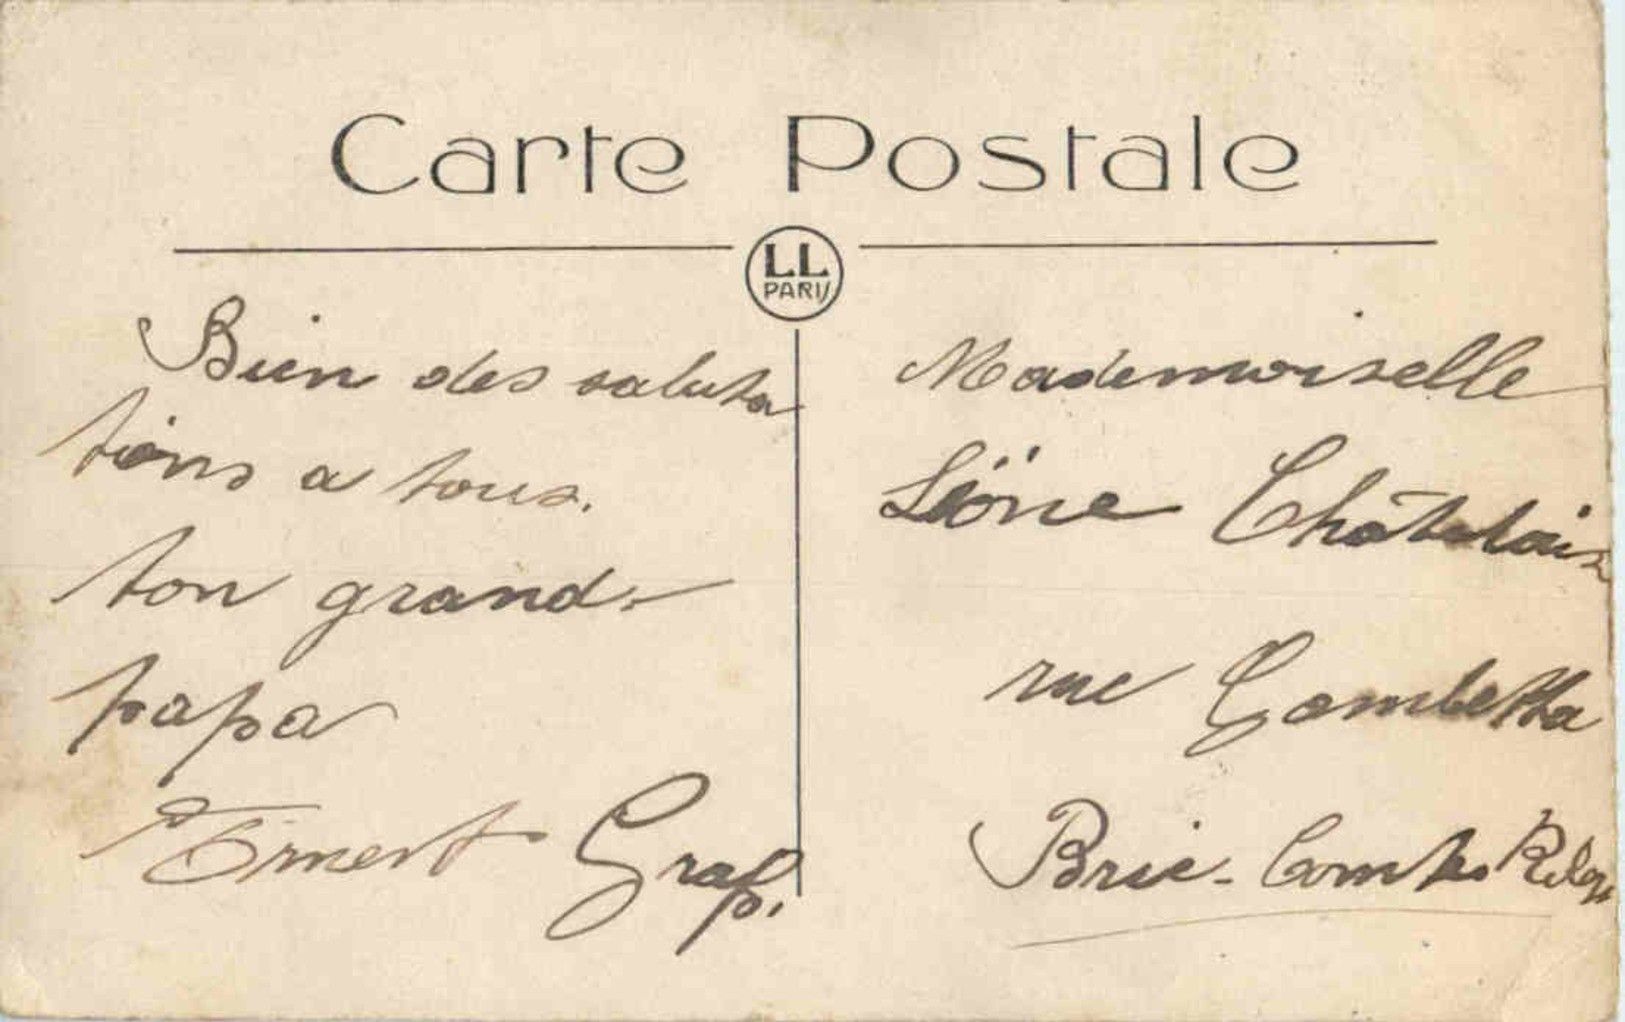 Carte Postale
LL
PARIS
Bien des saluta
tions a tous.
ton grand-
papa
Ernest Graf.
Mademoiselle
Léone Châtelain
rue Gambetta
Brie-Comte